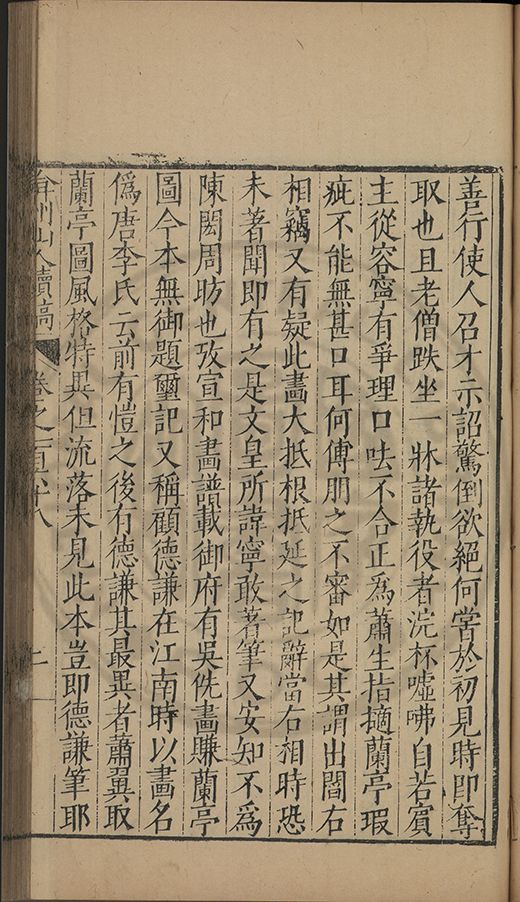 善行使人召才示詔驚倒欲絕何嘗於初見時即奪
取也且老僧趺坐一牀諸執役者浣杯噓咈自若賓
主從容寧有爭理口呿不合正為蕭生指摘蘭亭瑕
疵不能無甚口耳何傅朋之不審如是其謂出閻右
相竊又有疑此畫大抵根抵延之記辭當右相時恐
未著聞即有之是文皇所諱寧敢著筆又安知不為
陳閎周昉也攷宣和畫譜載御府有吳侁畫賺蘭亭
圖今本無御題璽記又稱顧德謙在江南時以畫名
偽唐李氏云前有愷之後有德謙其最異者蕭翼取
蘭亭圖風格特異但流落未見此本豈即德謙筆耶
弇州山人續稿
卷之一百六十八